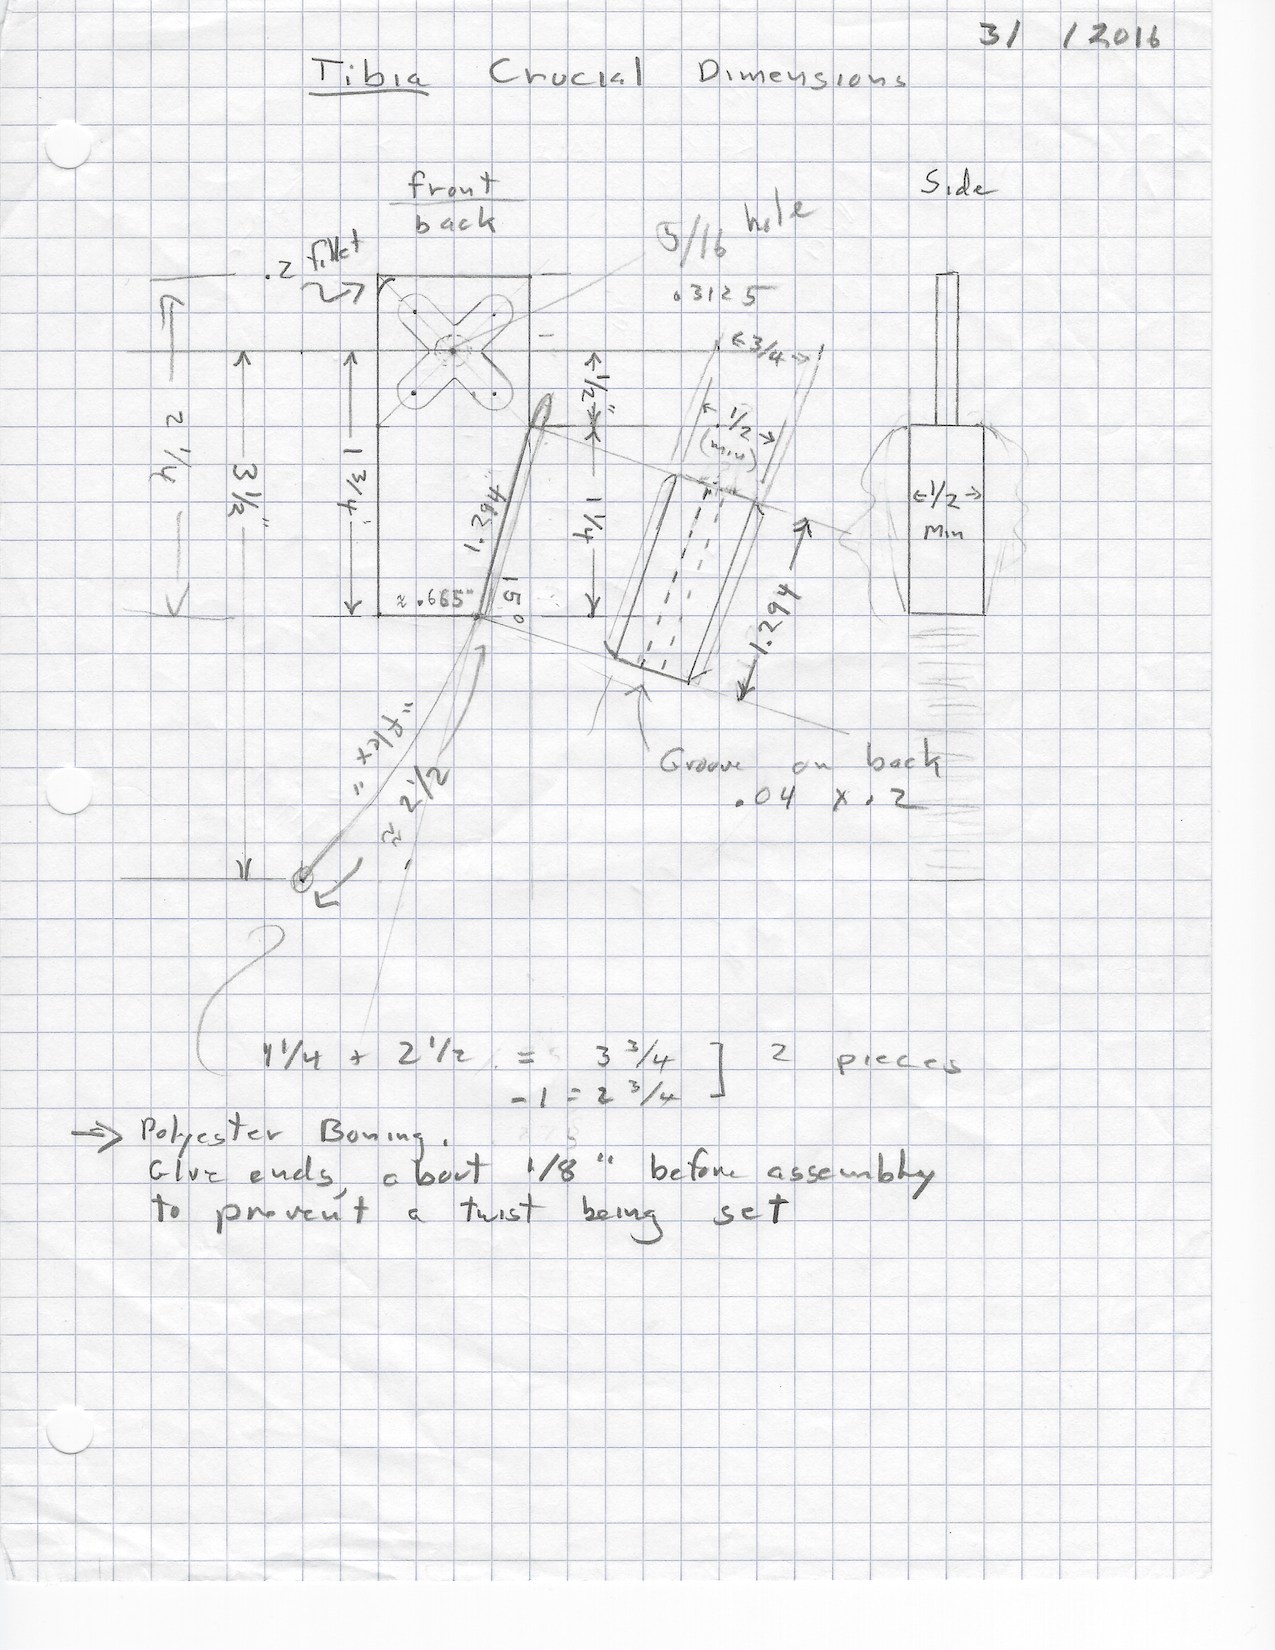 3/ /2016
Tibia Crucial Dimensions
front
back
Side
5/16 hole
.3125
.2 fillet
←3/4→
1/2
(min)
1/2"
2 1/4
3 1/2"
1 3/4
1.294
1 1/4
←1/2→
Min
≈ .665"
15°
1.294
"Flex"
≈ 2 1/2
Groove on back
.04 x .2
1 1/4 + 2 1/2 = 3 3/4 ] 2 pieces
-1 = 2 3/4
→ Polyester Boning.
Glue ends, about 1/8" before assembly
to prevent a twist being set